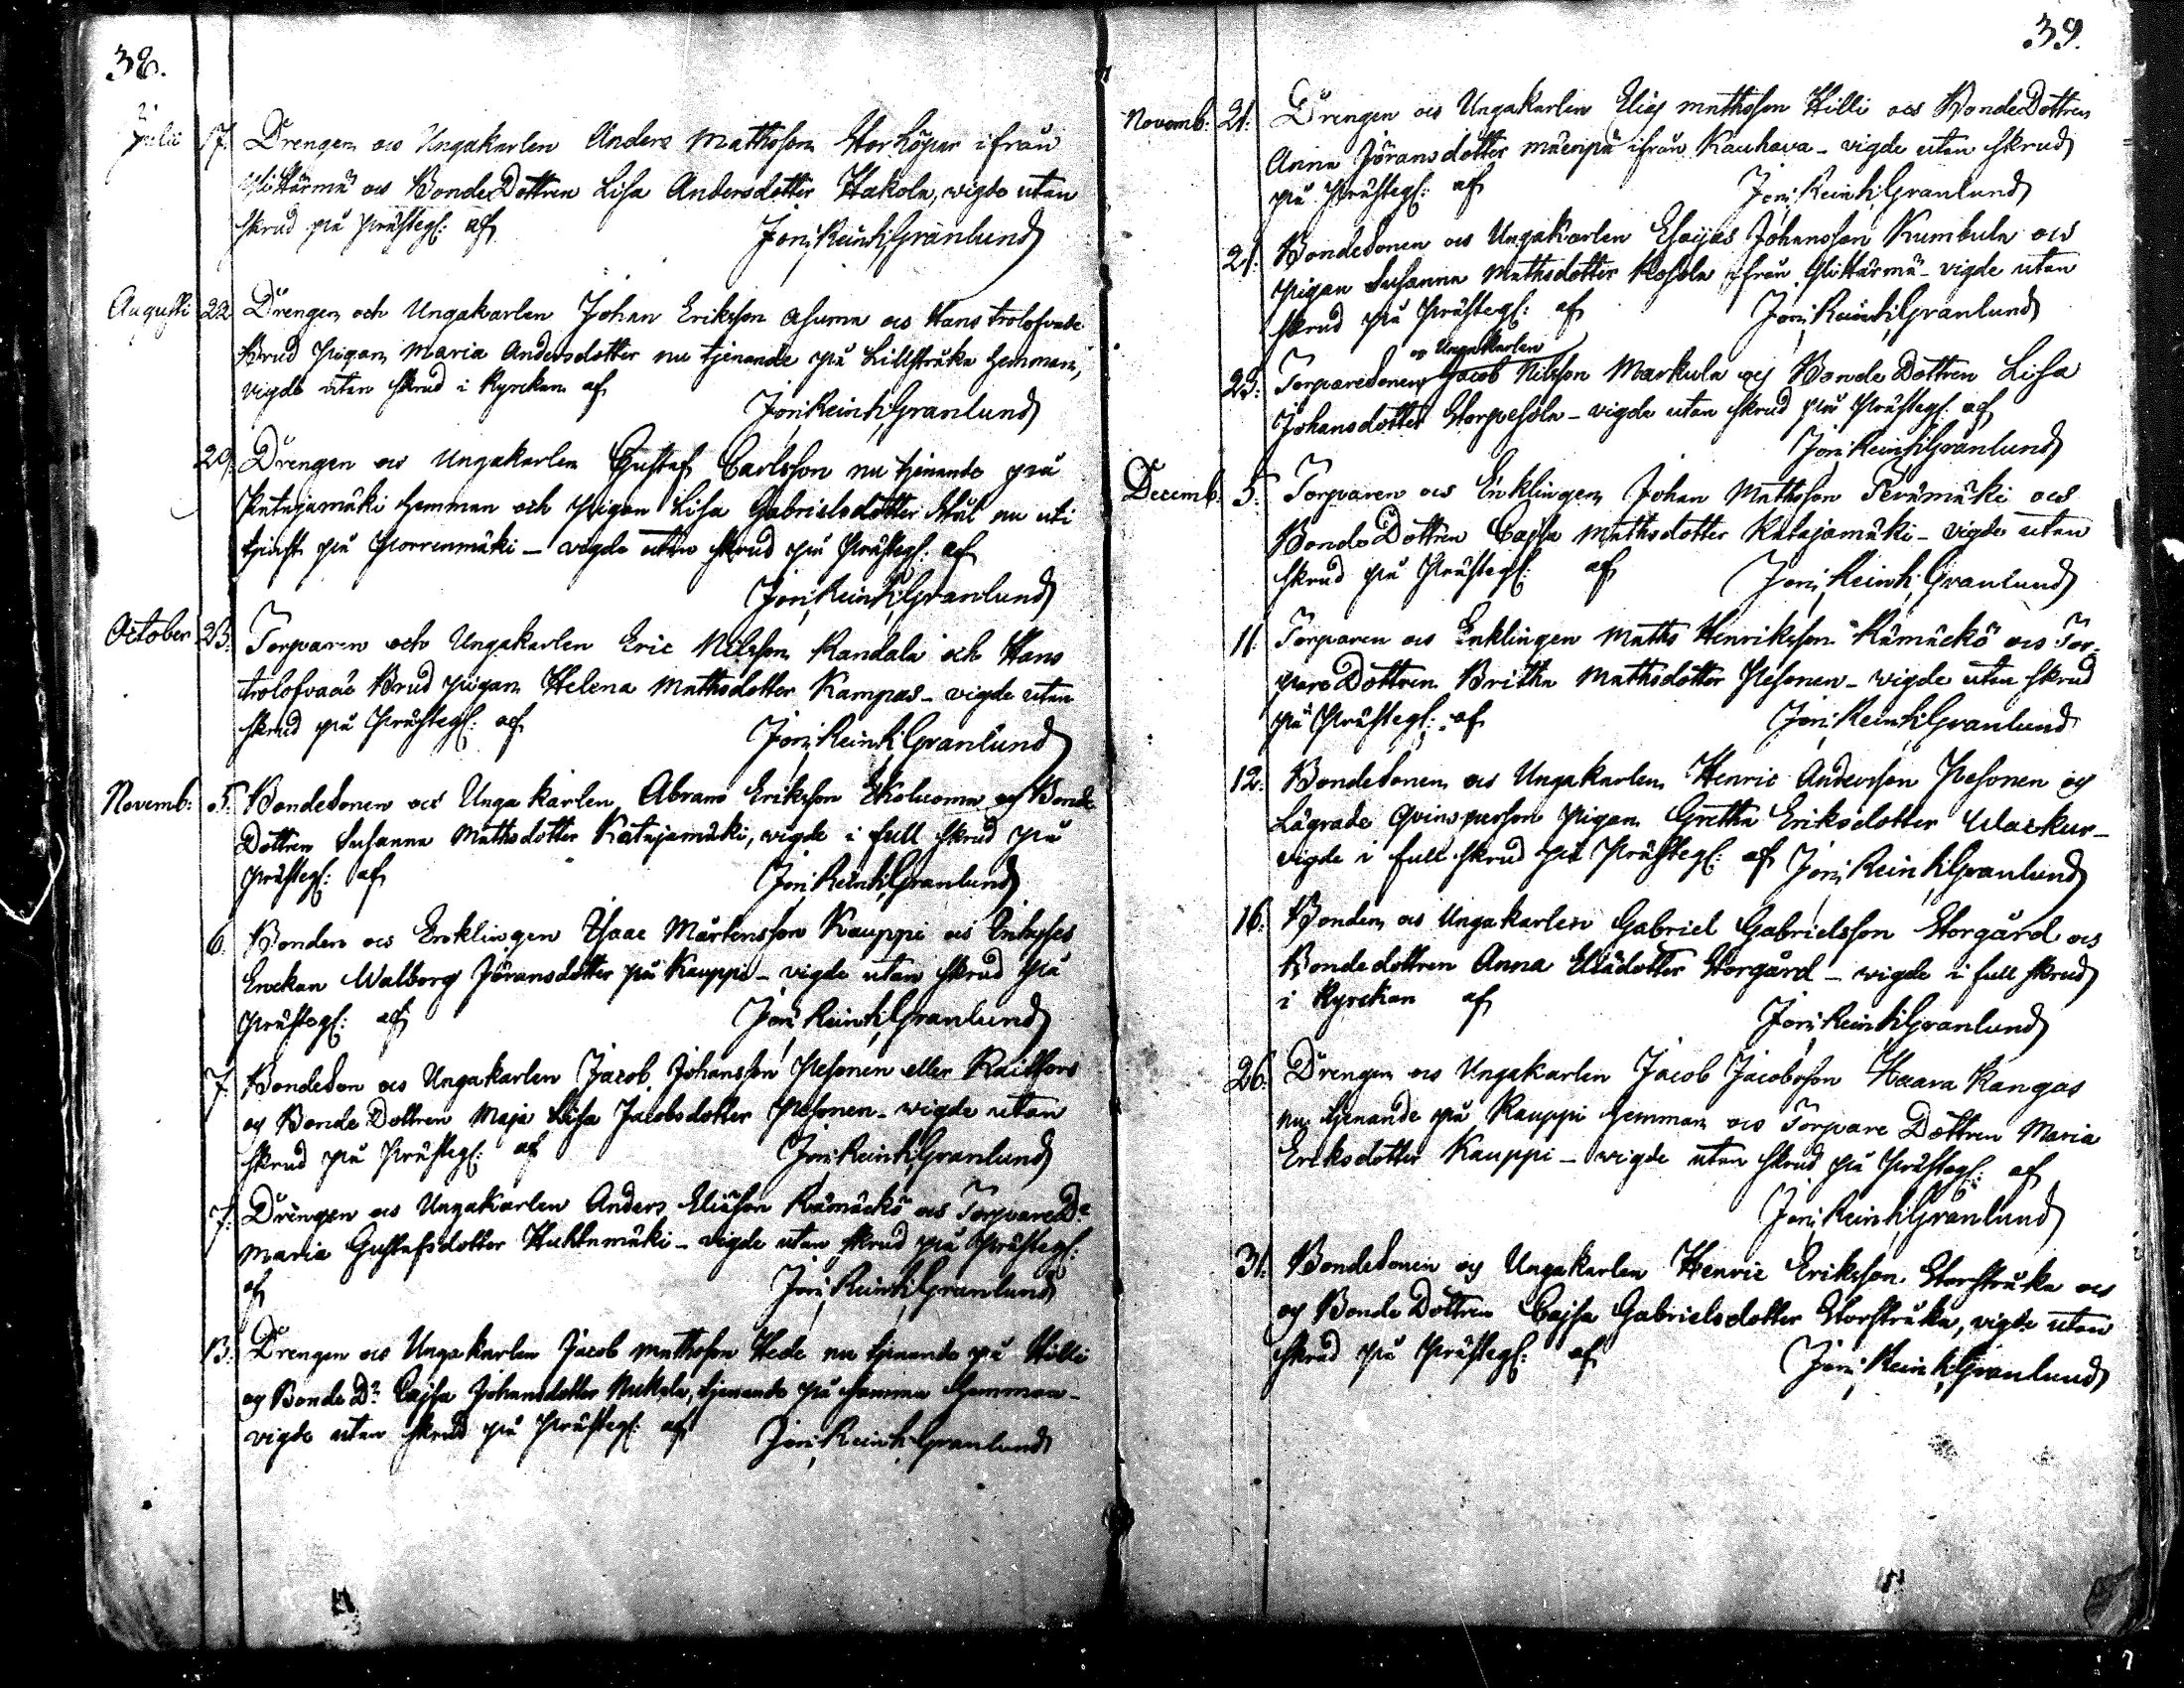 38.
Julii 17. Drengen och Ungakarlen Anders Mathsson Storköpar ifrån
Ylihärmä och BondeDottren Lisa Andersdotter Hakola, vigde utan
skrud på Prästeg: af
Jon: Reinh: Granlund
Augusti 22. Drengen och Ungakarlen Johan Eriksson Asuma och Hans trolofvade
Brud Pigan Maria Andersdotter nu tjenande på Lillstråka hemman,
vigde utan skrud i Kyrckan af
Jon: Reinh: Granlund
29. Drengen och Ungakarlen Gustaf Carlsson nu tjenande på
Katajamäki hemman och Pigan Lisa Gabrielsdotter Stål nu uti
tjenst på Porrenmäki - vigde utan skrud på Prästeg: af
Jon: Reinh: Granlund
October 23. Torparen och Ungakarlen Eric Nilsson Kandala och Hans
trolofvade Brud pigan Helena Mathsdotter Kampas - vigde utan
skrud på Prästeg: af
Jon: Reinh: Granlund
Novemb: 5. Bondesonen och Unga karlen Abram Eriksson Ekoluoma og Bonde
Dottren Susanna Mathsdotter Katajamäki, vigde i full skrud på
Prästeg: af
Jon: Reinh: Granlund
6. Bonden och Encklingen Isaac Mårtensson Kauppi och Inhyses
Enckan Walborg Jöransdotter på Kauppi - vigde utan skrud på
Prästeg: af
Jon: Reinh: Granlund
7. Bondeson och Ungakarlen Jacob Johansson Pesonen eller Raidfors
og Bonde Dottren Maja Lisa Jacobsdotter Pesonen - vigde utan
skrud på Prästeg: af
Jon: Reinh: Granlund
7. Drengen och Ungakarlen Anders Eliäson Rämäckö och Torpare Dr
Maria Gustafsdotter Huhtamäki - vigde utan skrud på Prästeg:
af
Jon: Reinh: Granlund
13. Drengen och Ungakarlen Jacob Mathsson Hede nu tjenande på Hilli
og Bonde Dr Cajsa Johansdotter Mickola, tjenande på samma Hemman -
vigde utan skrud på Prästeg: af
Jon: Reinh: Granlund
39.
Novemb: 21. Drengen och Ungakarlen Elias Mathsson Hilli och BondeDottren
Anna Jöransdotter Mäenpä ifrån Kauhava - vigde utan skrud
på Prästeg: af
Jon: Reinh: Granlund
21. Bondesonen och Ungakarlen Esaijas Johansson Kumbula och
Pigan Susanna Mathsdotter Kosola ifrån Ylihärmä - vigde utan
skrud på Prästeg: af
Jon: Reinh: Granlund
og Ungakarlen
23. Torparesonen Jacob Nilsson Markula og Bonde Dottren Lisa
Johansdotter Storpesola - vigde utan skrud på Prästeg: af
Jon: Reinh: Granlund
Decemb: 5. Torparen och Enklingen Johan Mathsson Perämäki och
Bonde Dottren Cajsa Mathsdotter Katajamäki - vigde utan
skrud på Prästeg: af
Jon: Reinh: Granlund
11. Torparen och Enklingen Maths Henriksson Rämäckö och Tor-
pare Dottren Britha Mathsdotter Pesonen - vigde utan skrud
på Prästeg: af
Jon: Reinh: Granlund
12. Bondesonen och Ungakarlen Henric Andersson Pesonen og
Lägrade Qvinsperson Pigan Gretha Eriksdotter Wackur -
vigde i full skrud på Prästeg: af Jon: Reinh: Granlund
16. Bonden och Ungakarlen Gabriel Gabrielsson Storgård och
Bondedottren Anna Eliädotter Storgård - vigde i full skrud
i Kyrckan af
Jon: Reinh: Granlund
26. Drengen och Ungakarlen Jacob Jacobsson Haara Kangas
nu tjenande på Kauppi hemman och Torpare Dottren Maria
Eriksdotter Kauppi - vigde utan skrud på Prästeg: af
Jon: Reinh: Granlund
31. Bondesonen og Ungakarlen Henric Eriksson Storstråka och
og Bonde Dottren Cajsa Gabrielsdotter Storstråka, vigde utan
skrud på Prästeg: af
Jon: Reinh: Granlund